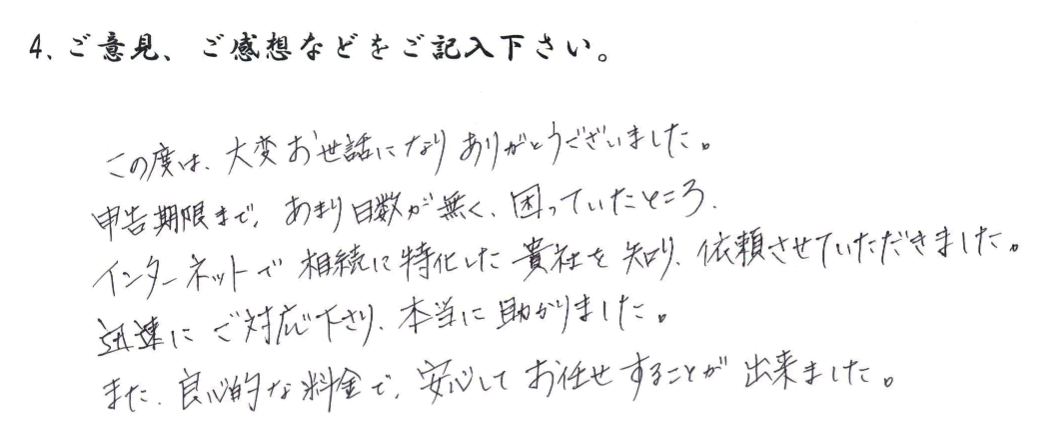 4、ご意見、ご感想などをご記入下さい。
この度は、大変お世話になりありがとうございました。
申告期限まで、あまり日数が無く、困っていたところ、
インターネットで相続に特化した貴社を知り、依頼させていただきました。
迅速にご対応下さり、本当に助かりました。
また、良心的な料金で、安心してお任せすることが出来ました。